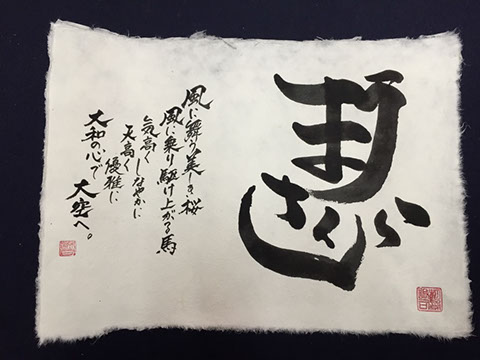 さくら
風に舞う美しき桜
風に乗り駆け上がる馬
気高くしなやかに
天高く優雅に
大和の心で大空へ。